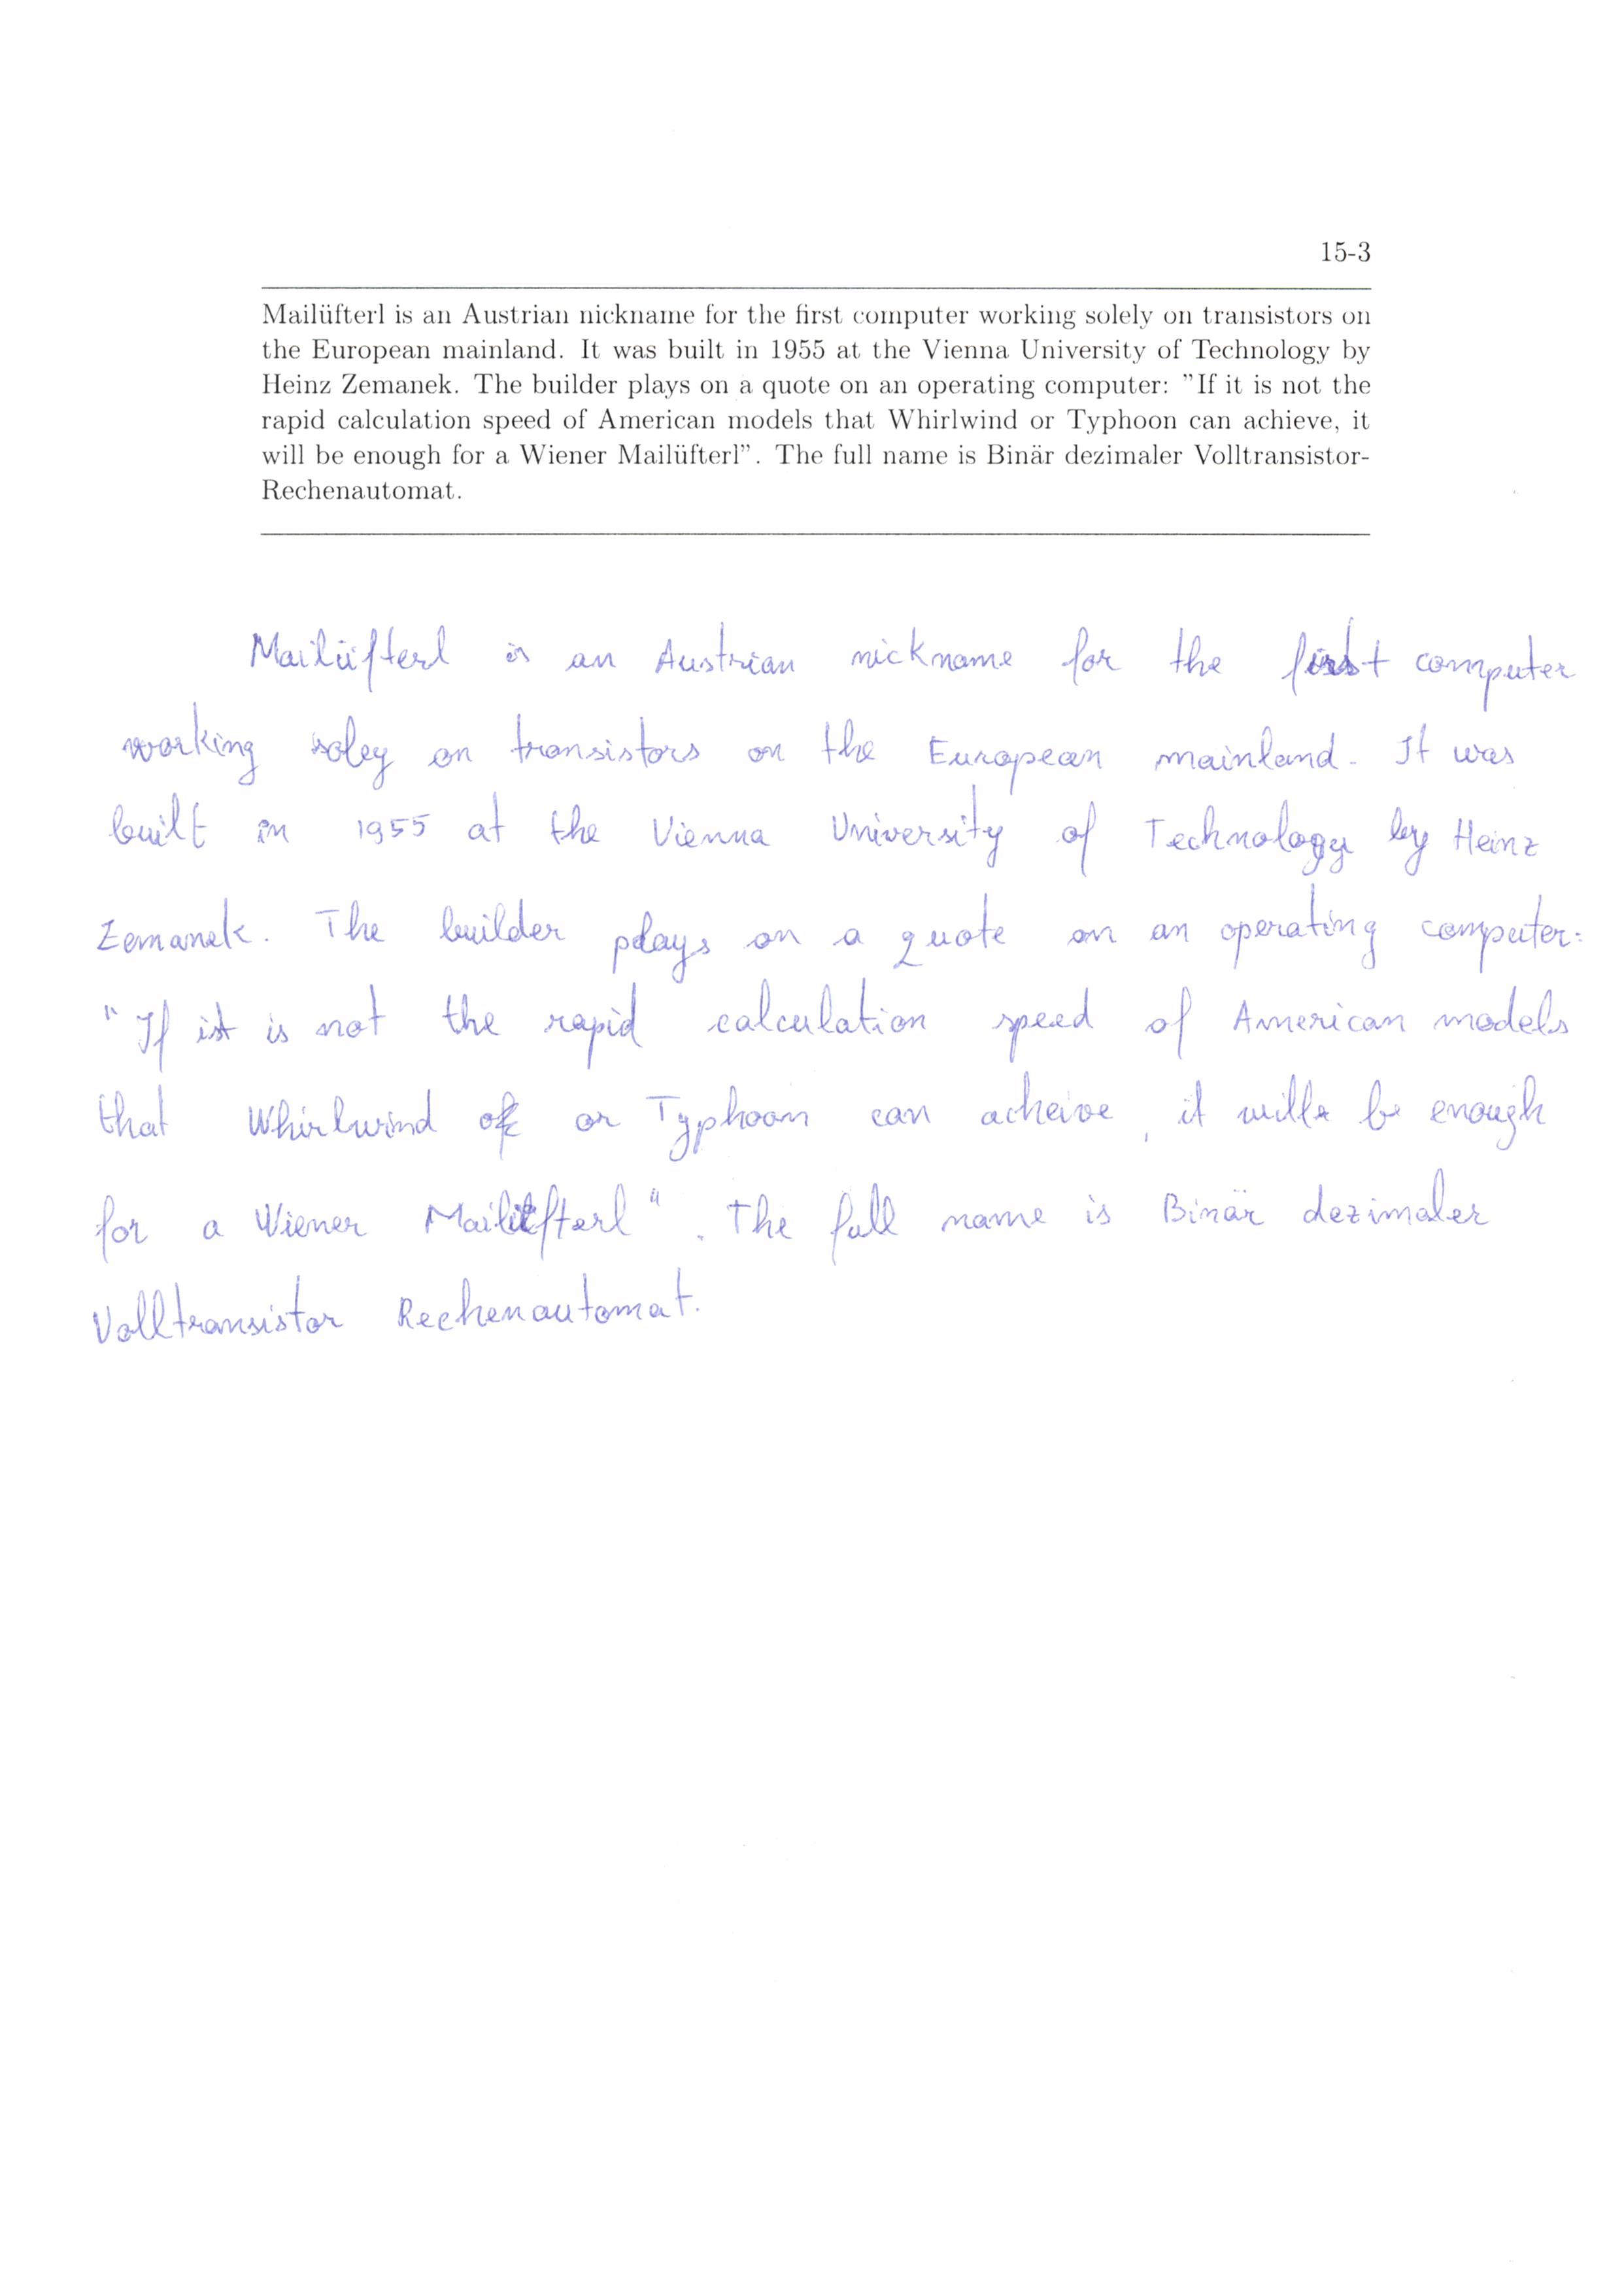 15-3
Mailüfterl is an Austrian nickname for the first computer working solely on transistors on
the European mainland. It was built in 1955 at the Vienna University of Technology by
Heinz Zemanek. The builder plays on a quote on an operating computer: "If it is not the
rapid calculation speed of American models that Whirlwind or Typhoon can achieve, it
will be enough for a Wiener Mailüfterl". The full name is Binär dezimaler Volltransistor-
Rechenautomat.
Mailüfterl is an Austrian nickname for the first computer
working soley on transistors on the European mainland. It was
built in 1955 at the Vienna University of Technology by Heinz
Zemanek. The builder plays on a quote on an operating computer:
"If it is not the rapid calculation speed of American models
that Whirlwind or Typhoon can acheive, it will be enough
for a Wiener Mailüfterl". The full name is Binär dezimaler
Volltransistor Rechenautomat.